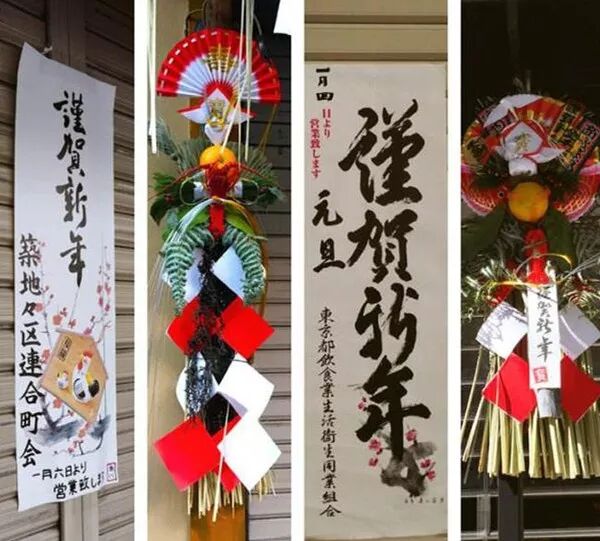 謹賀新年
築地々区連合町会
一月六日より
営業致しま
一月四
日より
営業致します
謹賀新年
元旦
東京都飲食業生活衛生同業組合
謹賀新年
賀